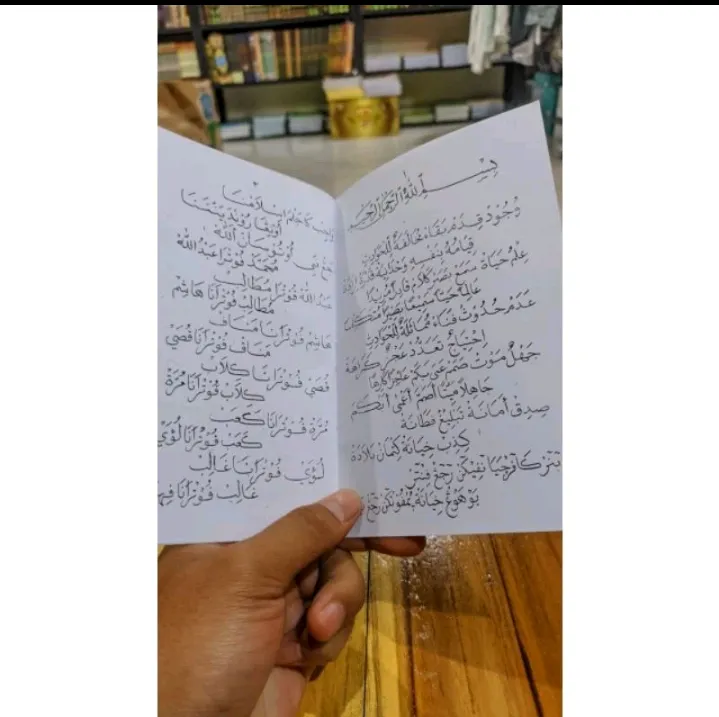 بِسْمِ اللهِ الرَّحْمٰنِ الرَّحِيْمِ
وُجُوْد قِدَمْ بَقَاءْ مُخَالَفَةُ لِلْحَوَادِثْ
قِيَامُهُ بِنَفْسِهِ وَحْدَانِيَةْ قُدْرَةْ
عِلْمُ حَيَاةْ سَمَعْ بَصَرْ كَلَامْ قَادِرًا مُرِيْدًا
عَالِمًا حَيًّا سَمِيْعًا بَصِيْرًا مُتَكَلِّمًا
عَدَمْ حُدُوْثْ فَنَاءْ مُمَاثَلَةُ لِلْحَوَادِثْ
اِحْتِيَاجْ تَعَدُّدْ عَجْزْ كَرَاهَةْ
جَهْلْ مَوْتْ صَمَمْ عَمِيَ بُكْمْ عَاجِزًا كَارِهًا
جَاهِلًا مَيِّتًا اَصَمَّ اَعْمٰى اَبْكَمْ
صِدِقْ اَمَانَةْ تَبْلِيْغْ فَطَانَةْ
كِذِبْ خِيَانَةْ كِتْمَانْ بَلَادَةْ
رَجَعْ
خِيَانَةْ رَجَعْ
وَاجِبْ
اُوْتُوْسَانْ اللهْ
نَبِي مُحَمَّدْ فُوْتْرَا عَبْدُ اللهْ
عَبْدُ اللهْ فُوْتْرَا مُطَالِبْ
مُطَالِبْ فُوْتْرَانَا هَاشِمْ
هَاشِمْ فُوْتْرَانَا مَنَافْ
مَنَافْ فُوْتْرَانَا قُصَيْ
قُصَيْ فُوْتْرَانَا كِلَابْ
كِلَابْ فُوْتْرَانَا مُرَّةْ
مُرَّةْ فُوْتْرَانَا كَعَبْ
كَعَبْ فُوْتْرَانَا لُؤَيْ
لُؤَيْ فُوْتْرَانَا غَالِبْ
غَالِبْ فُوْتْرَانَا